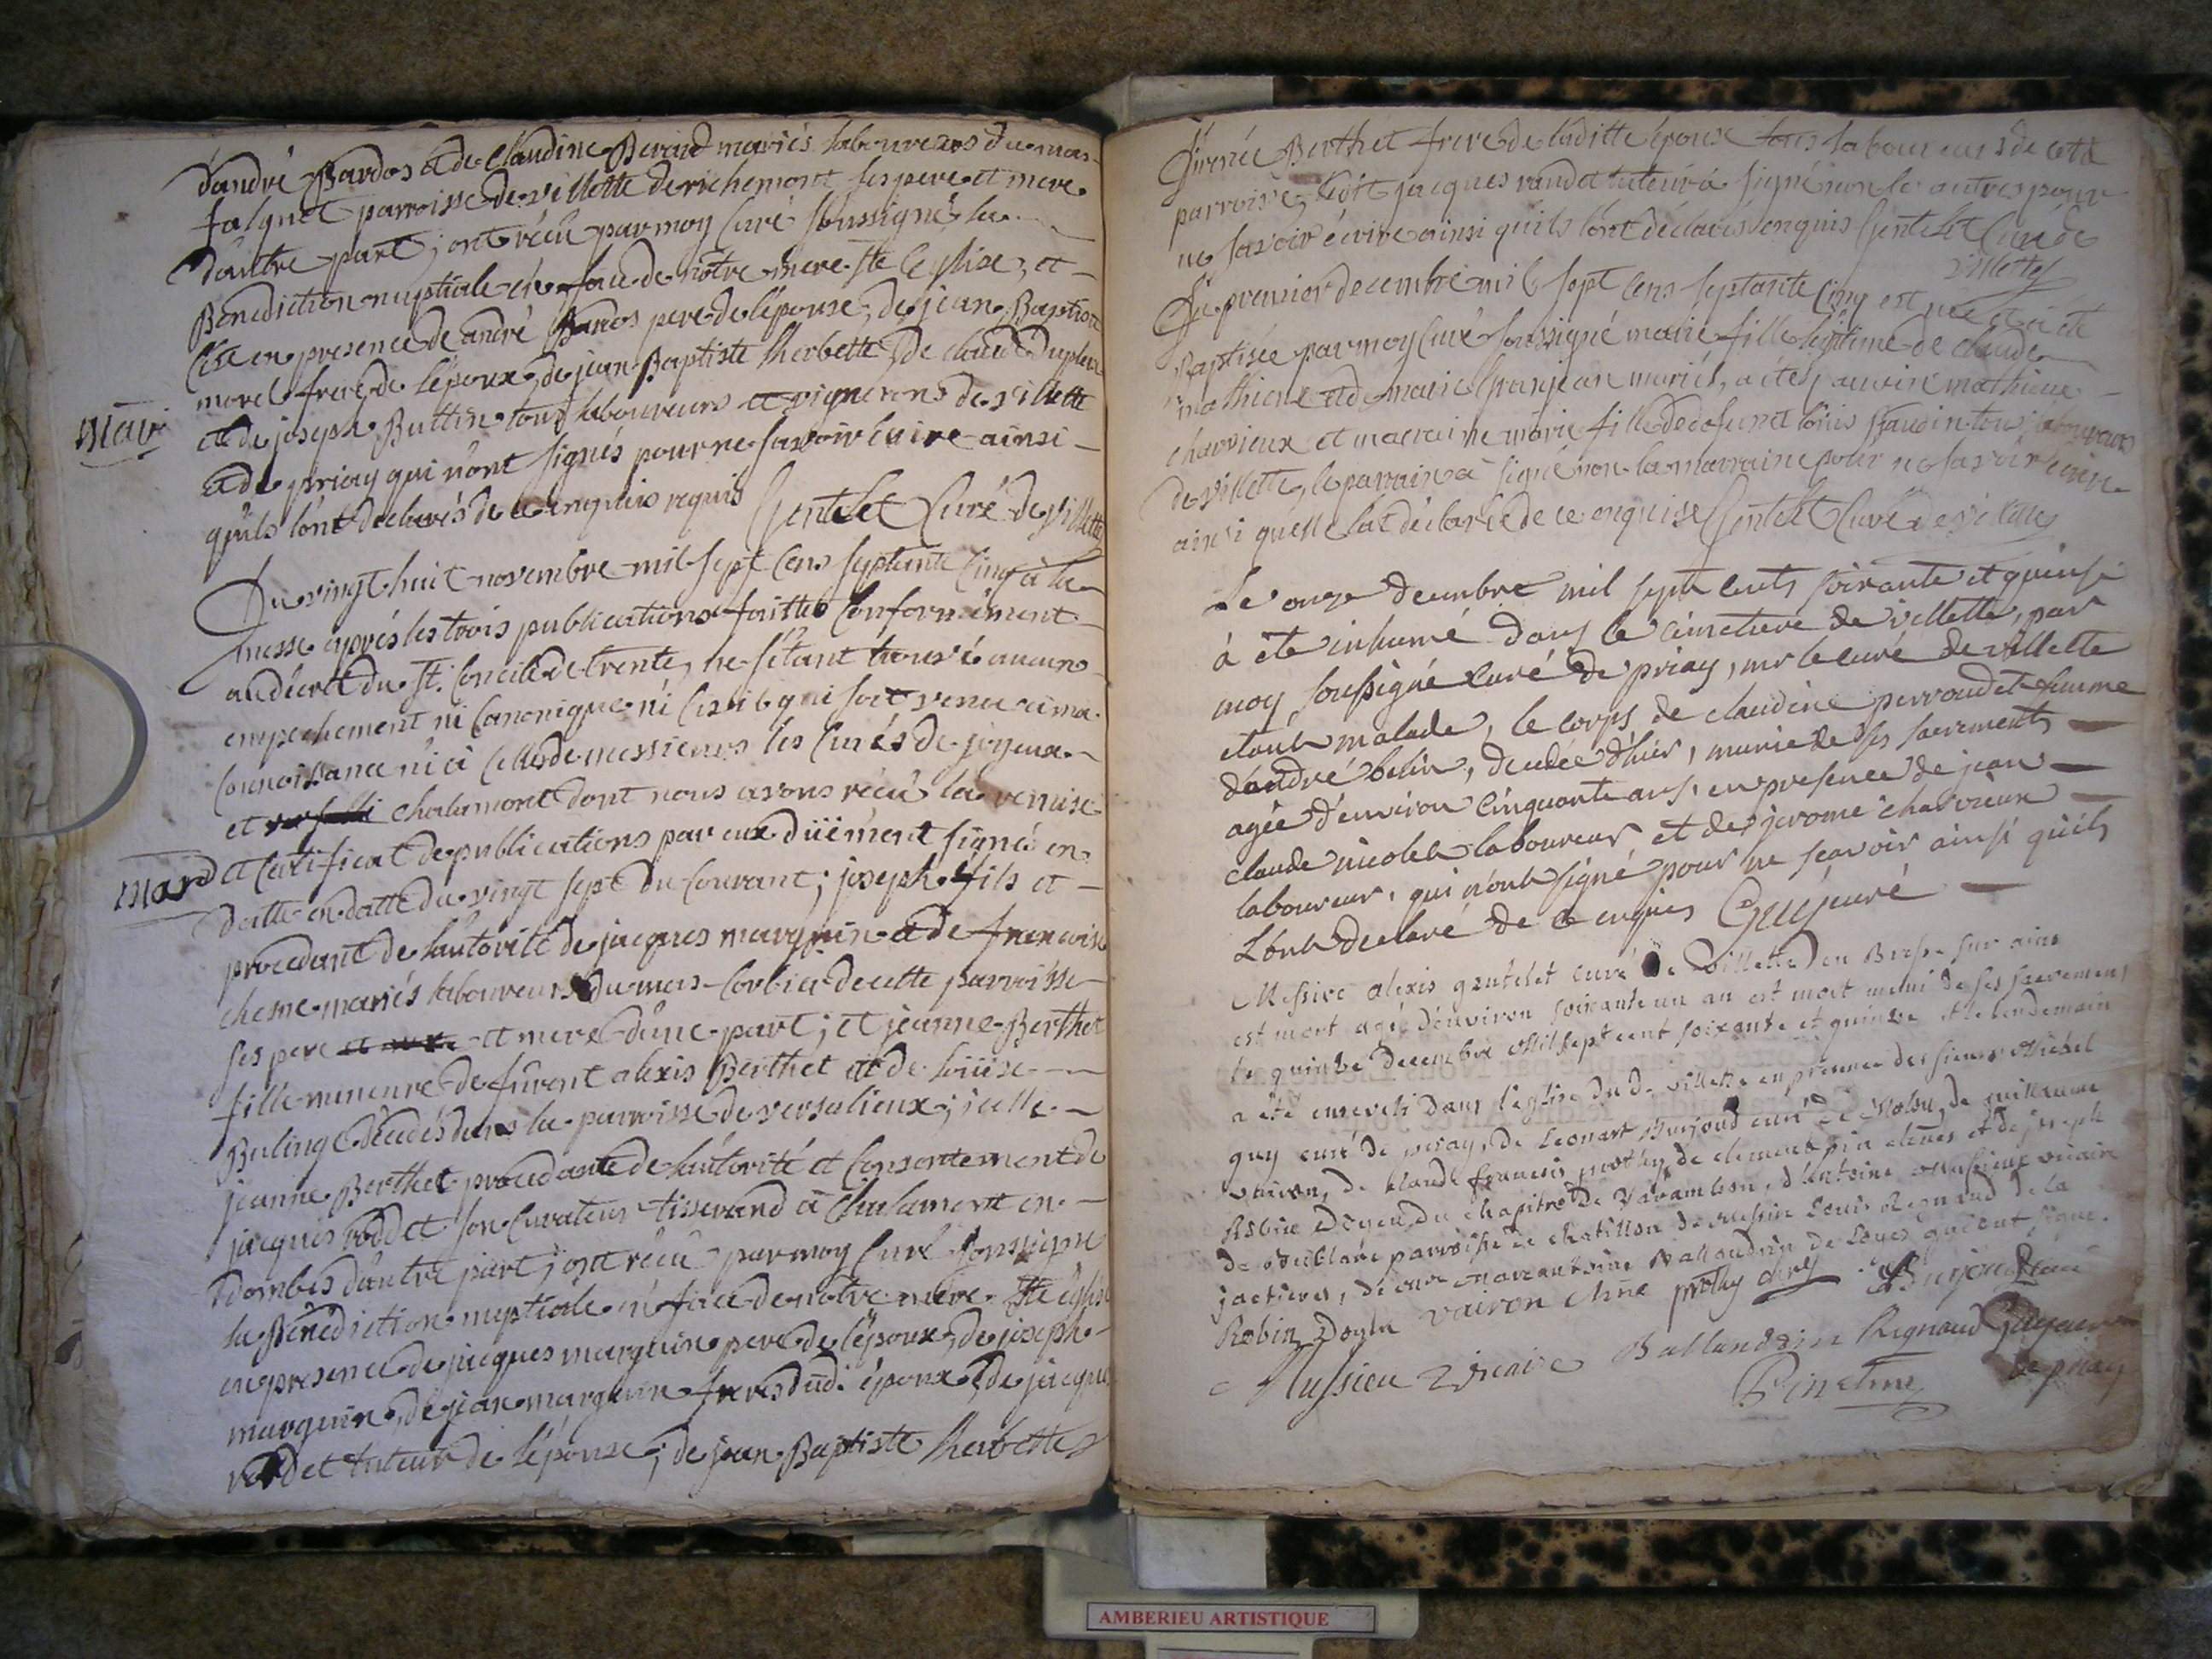 d'andré Bardos et de Claudine Berard mariés laboureurs du mas
falquet parroisse de villette de richemont ses pere et mere
d'autre part; ont reçû par moy Curé soussigné la
Benediction nuptiale en face de nôtre mere Ste Eglise, et
c'est en presence de andré Bardos pere de l'épouse, de jean Baptiste
morel frere de l'époux, de jean Baptiste therbette, de claude
et de joseph Buttin tous laboureurs et vignerons de villette
mari
et de priay qui n'ont signés pour ne savoir écrire ainsi
qu'ils l'ont déclarés de ce enquis requis Gentelet Curé de villette
Du vingt huit novembre mil sept cens septante cinq à la
messe après les trois publications faittes conformément
au décret du St. Concile de trente, ne s'étant trouvé aucun
empechement ni Canonique ni Civil qui soit venu à ma
Connoissance ni à celle de messieurs les Curés de joyeux
et chalamont dont nous avons réçû la remise
mard
et certificat de publications par eux düement signés en
datte en datte du vingt sept du Courant; joseph fils et
procedant de l'autorité de jacques marguin et de francoise
chesne mariés laboureurs du mas Corbier de cette parroisse
ses pere et mere d'une part; et jeanne Berthet
fille mineure de furent alexis Berthet et de loüise
Bulinge décédés dans la parroisse de versalieux; icelle
jeanne Berthet procedante de l'autorité et Consentement de
jacques roudet son Curateur tisserand à Chalamont en
Dombes d'autre part; ont reçû par moy Curé soussigné
la Bénédiction nuptiale en face de nôtre mere Ste église
en presence de jacques marguin pere de l'époux, de joseph
marguin, de jean marguin freres dud. époux, de jacques
roudet tuteur de l'épouse, de jean Baptiste therbette
Berthet frere de laditte épouse tous laboureurs de cette
parroisse, ledit jacques roudet tuteur a signé non les autres pour
ne savoir écrire ainsi qu'ils l'ont déclarés enquis Gentelet Curé de
villette
Du premier decembre mil sept cens septante cinq est née et a été
Baptisée par moy Curé soussigné marie fille légitime de claude
mathieu et de marie Granjean mariés, a été parrain mathieu
charvieux et marraine marie fille de defunct loüis Gaudin tous laboureurs
de villette, le parrain a signé non la marraine pour ne savoir écrire
ainsi quelle l'at déclarée de ce enquise Gentelet Curé de villette
Le onze decembre mil sept cents soixante et quinse
à été inhumé dans le cimetiere de villette, par
moy soussigné curé de priay, mr le curé de villette
étant malade, le corps de claudine perroudet femme
d'andré belin, decedée d'hier, munie de ses sacrements
agée d'environ cinquante ans, en presence de jean
claude nicolet laboureur, et de jerome charvieux
laboureur, qui n'ont signé pour ne scavoir ainsi qu'ils
L'ont declaré de ce enquis Guy curé
Messire alexis gentelet curé de Villette en Bresse sur ains
est mort agé d'environ soixante un an est mort muni de ses sacremens
le quinze decembre Mil sept cent soixante et quinze et le lendemain
a été enseveli dans l'eglise du d. villette en presence des sieurs Michel
guy curé de priay, de Leonart Burjoud curé de Molon, de guillaume
vairon, de klaude francois prothy, de clement pin clercs et de joseph
Robin Doyen du chapitre de Varambon, d'antoine Mussieux vicaire
de parroisse de chatillon de messire Louis Regnaud de la
jactieres, de sieur Marcantoine Ballandrin de Loyes qui ont signé.
Robin Doyen vairon chne prothy chne Burjoud curé
Mussieu Vicaire Ballandrin Regnaud Guy curé
Pin chne de priay
AMBERIEU ARTISTIQUE